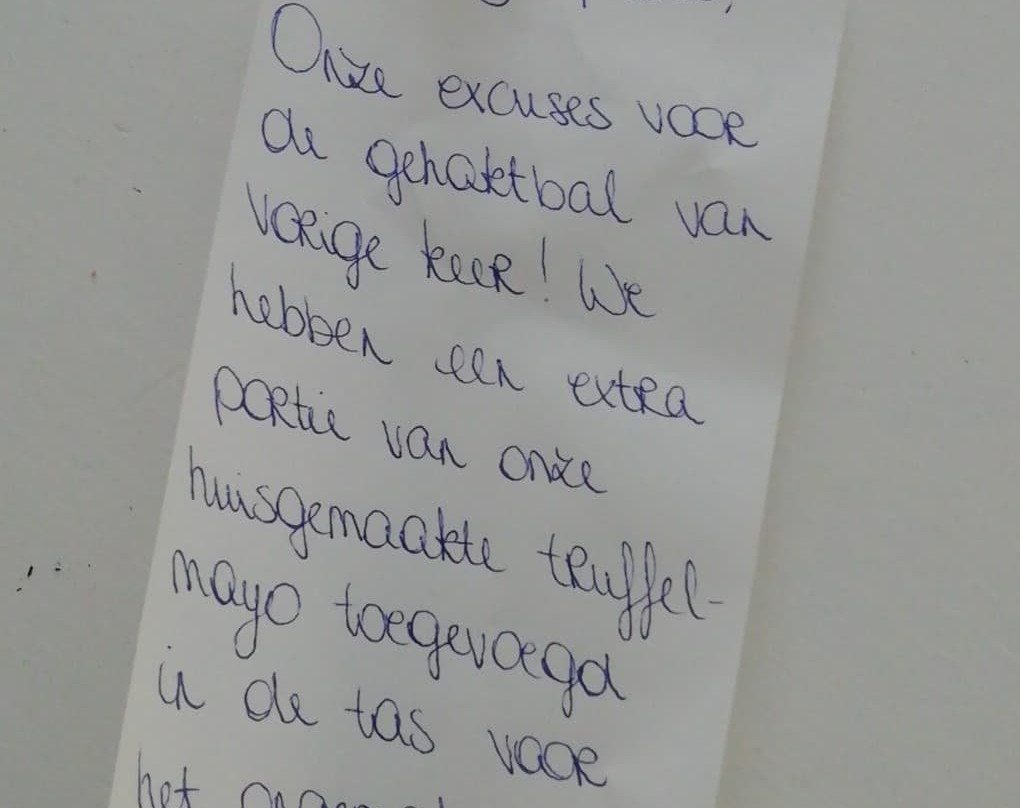 Onze excuses voor
de gehaktbal van
vorige keer! We
hebben een extra
portie van onze
huisgemaakte truffel-
mayo toegevoegd
in de tas voor
het